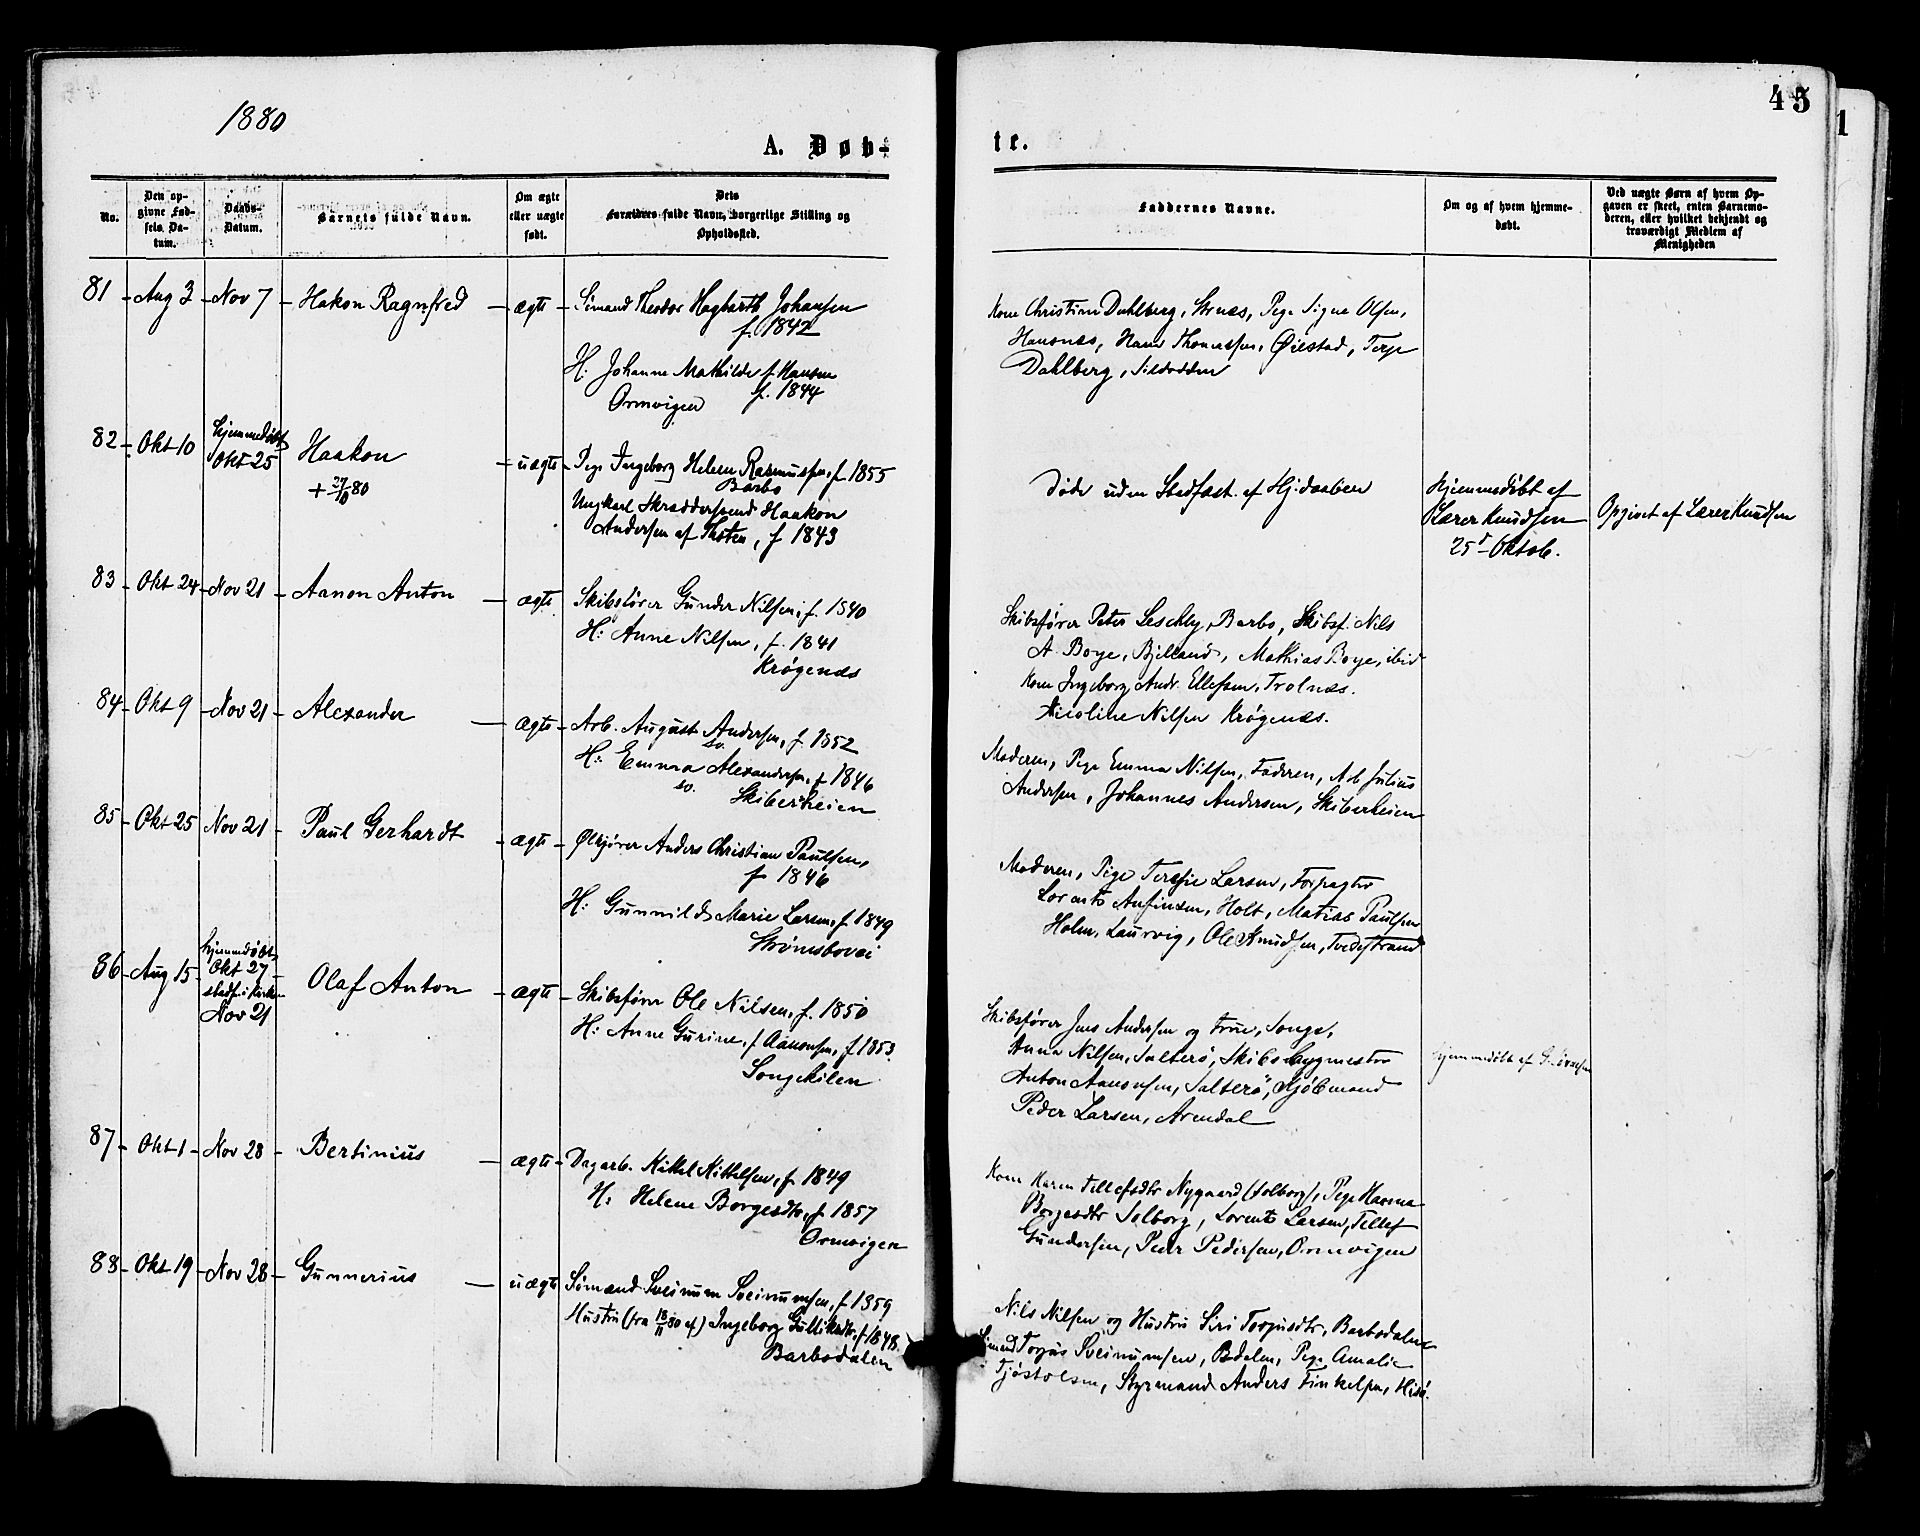 45
1
1880
A. Døb-
te.
No.
Den op-
givne Fød-
sels Da-
tum.
Daabs-
Datum.
Barnets fulde Navn.
Om ægte
eller uægte
født.
Dets
Forældres fulde Navn, borgerlige Stilling og
Opholdssted.
Faddernes Navne.
Om og af hvem hjemme-
døbt.
Ved uægte Børn af hvem Op-
gaven er skeet, enten Barnemo-
deren, eller hvilket bekjendt og
troværdigt Medlem af
Menigheden
81 Aug 3 Nov 7 Hakon Ragnfred ægte Sømand Theodor Hagbarth Johansen
f. 1842
H: Johanne Mathilde f. Hansen
f. 1844
Ormvigen
Kone Christine Dahlberg, Strnæs, Pige Signe Olsen,
Hansnæs, Hans Thomassen, Øiestad, Terje
Dahlberg, Sildodden
82 Okt 10 hjemmedøbt
Okt 25 Haakon
+ 27/10 80
uægte Pige Ingeborg Helene Rasmussen, f 1855
Barbo
Ungkarl Skræddersvend Haakon
Andersen af Thoten, f 1843
Døde uden Stadfæst. af Hj.daaben
Hjemmedøbt af
Lærer Knudsen
25 Oktob.
Opgivet af Lærer Knudsen
83 Okt 24 Nov 21 Aanon Anton ægte Skibsfører Gunder Nilsen, f. 1840
H: Anne Nilsen, f. 1841
Krøgenæs
Skibsfører Peter Leschly, Barbo, Skibsf. Nils
A. Boye, Bjelland, Mathias Boye, ibid
Kone Ingeborg Andr. Ellefsen, Trolnæs.
Nicoline Nilsen Krøgenæs.
84 Okt 9 Nov 21 Alexander ægte Arb. August Andersen, f 1852
sv.
H: Emma Alexandersen, f 1846
sv. Skiberheien
Moderen, Pige Emma Nilsen, Faderen, Arb Julius
Andersen, Johannes Andersen, Skiberheien
85 Okt 25 Nov 21 Paul Gerhardt ægte Ølkjører Anders Christian Paulsen,
f 1846
H: Gunnild Marie Larsen, f 1849
Strømsbovei
Moderen, Pige Teresie Larsen, Forpagter
Lorents Anfinsen, Holt, Matias Paulsen
Holm, Laurvig, Ole Knudsen, Tvedestrand
86 Aug 15 hjemmedøbt
Okt 27
stadf. i Kirken
Nov 21
Olaf Anton ægte Skibsfører Ole Nilsen, f. 1850
H: Anne Gurine, f Aanonsen, f 1853.
Songekilen
Skibsfører Jens Andersen og Frue, Songe,
Anna Nilsen, Salterø, Skibsbygmester
Anton Aanonsen, Salterø, Kjøbmand
Peder Larsen, Arendal
hjemmedøbt af
87 Okt 1 Nov 28 Bertinius ægte Dagarb. Kittel Kittelsen, f 1849
H: Helene Borgesdtr, f 1857
Ormvigen
Kone Karen Tellefsdtr Nygaard (Solborg), Pige Hanna
Borgesdtr Solborg, Lorents Larsen, Tellef
Gundersen, Peder Pedersen, Ormvigen
88 Okt 19 Nov 28 Gunnerius uægte Sømand Sveinum Sveinumsen, f 1859
Hustru (fra 18/11 80 af) Ingeborg Gulliksdtr, f 1848.
Barbodalen
Nils Nilsen og Hustru Siri Torjusdtr, Barbodalen
Sømand Torjus Sveinumsen, Bdalen, Pige Amalie
Tjøstolsen, Styrmand Anders Finkelsen, Hisø.